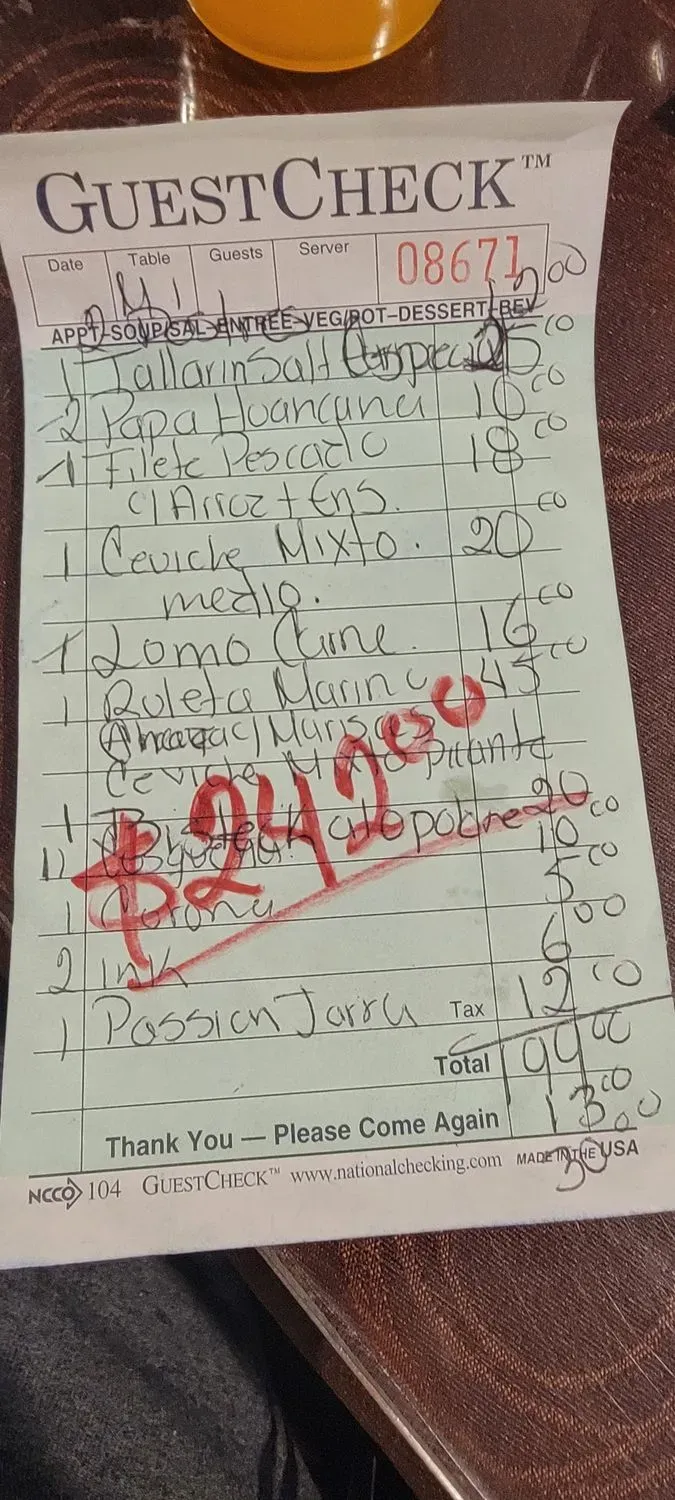 GUESTCHECK™
Date Table Guests Server 08671
M1 2 00
APPT-SOUP/SAL-ENTREE-VEG/POT-DESSERT-BEV
1 Tallarin Salt 25 00
2 Papa Huancanu 16 00
1 Filete Pescado 18 00
c/Arroz + Ens.
1 Ceviche Mixto. 20 00
medio.
1 Lomo Carne. 16 00
1 Ruleta Marinc 45 00
c/Mariscos
Ceviche Mixto picante
1 alopobre 20
$242.00
10 00
1 Corona 5 00
2 ink 6 00
1 Passion Jarra Tax 12 00
Total 199 00
13 00
Thank You — Please Come Again
30.00
NCCO 104 GUESTCHECK™ www.nationalchecking.com MADE IN THE USA